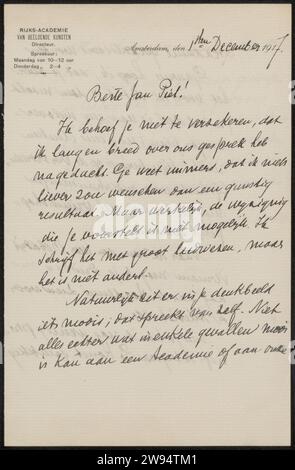 RIJKS-ACADEMIE
VAN BEELDENDE KUNSTEN
Directeur.
Spreekuur:
Maandag van 10–12 uur
Donderdag „ 2–4 „
Amsterdam, den 1sten December 1917.
Beste Jan Piet!
Ik behoef je niet te verzekeren, dat
ik lang en breed over ons gesprek heb
nagedacht. Ge weet immers, dat ik niets
liever zou wenschen dan een gunstig
resultaat. Maar werkelijk, de wijziging
die je voorstelt is niet mogelijk. Ik
schrijf het met groot leedwezen, maar
het is niet anders.
Natuurlijk zit er in je denkbeeld
iets moois; dat spreekt van zelf. Niet
alles echter wat in enkele gevallen mooi
is kan aan een Academie of aan
alamy
Image ID: 2W94TM1
www.alamy.com